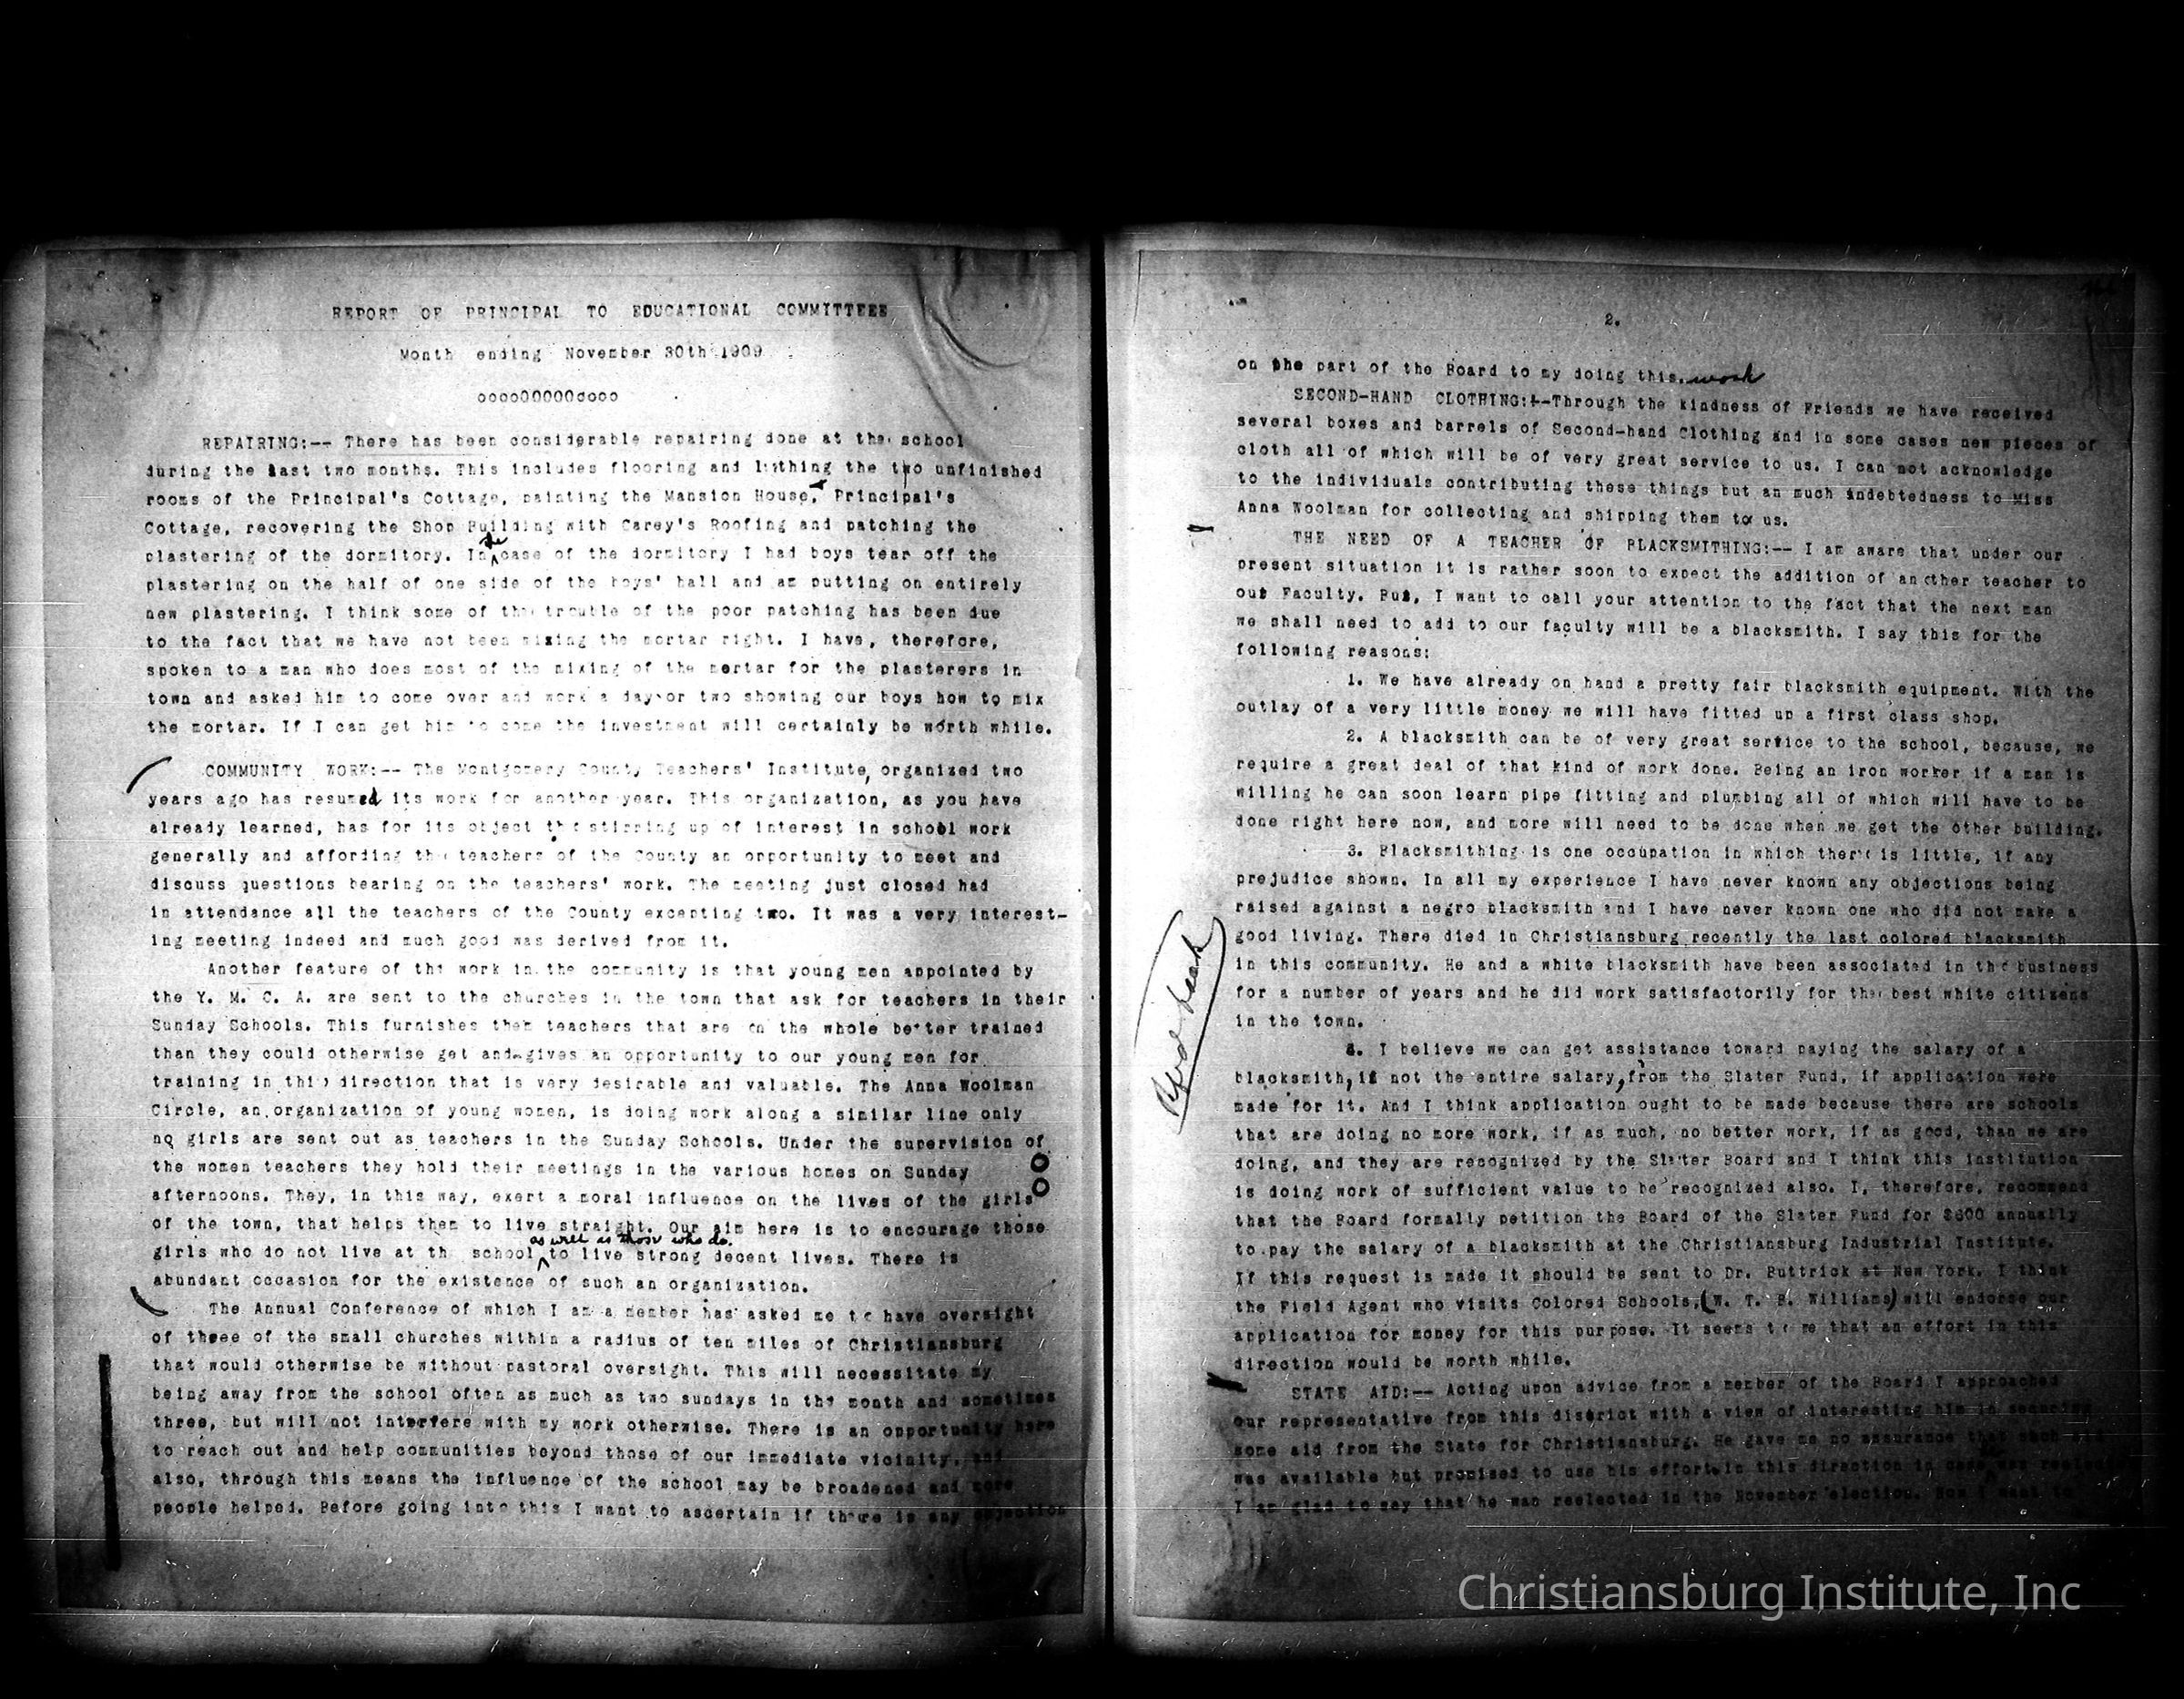 REPORT OF PRINCIPAL TO EDUCATIONAL COMMITTEEE
Month ending November 30th 1909
oooo00000oooo
REPAIRING:-- There has been considerable repairing done at the school
during the last two months. This includes flooring and lathing the two unfinished
rooms of the Principal's Cottage, painting the Mansion House, Principal's
Cottage, recovering the Shop Building with Carey's Roofing and patching the
plastering of the dormitory. In the case of the dormitory I had boys tear off the
plastering on the half of one side of the boys' hall and am putting on entirely
new plastering. I think some of the trouble of the poor patching has been due
to the fact that we have not been mixing the mortar right. I have, therefore,
spoken to a man who does most of the mixing of the mortar for the plasterers in
town and asked him to come over and work a day or two showing our boys how to mix
the mortar. If I can get him to come the investment will certainly be worth while.
COMMUNITY WORK:-- The Montgomery County Teachers' Institute, organized two
years ago has resumed its work for another year. This organization, as you have
already learned, has for its object the stirring up of interest in school work
generally and affording the teachers of the County an opportunity to meet and
discuss questions bearing on the teachers' work. The meeting just closed had
in attendance all the teachers of the County excepting two. It was a very interest-
ing meeting indeed and much good was derived from it.
Another feature of the work in the community is that young men appointed by
the Y. M. C. A. are sent to the churches in the town that ask for teachers in their
Sunday Schools. This furnishes them teachers that are on the whole better trained
than they could otherwise get and gives an opportunity to our young men for
training in this direction that is very desirable and valuable. The Anna Woolman
Circle, an organization of young women, is doing work along a similar line only
no girls are sent out as teachers in the Sunday Schools. Under the supervision of
the women teachers they hold their meetings in the various homes on Sunday
afternoons. They, in this way, exert a moral influence on the lives of the girls
of the town, that helps them to live straight. Our aim here is to encourage those
as well as those who do.
girls who do not live at the school to live strong decent lives. There is
abundant occasion for the existence of such an organization.
The Annual Conference of which I am a member has asked me to have oversight
of three of the small churches within a radius of ten miles of Christiansburg
that would otherwise be without pastoral oversight. This will necessitate my
being away from the school often as much as two sundays in the month and sometimes
three, but will not interfere with my work otherwise. There is an opportunity here
to reach out and help communities beyond those of our immediate vicinity, and
also, through this means the influence of the school may be broadened and more
people helped. Before going into this I want to ascertain if there is any objection
2.
on the part of the Board to my doing this work
SECOND-HAND CLOTHING:--Through the kindness of Friends we have received
several boxes and barrels of Second-hand Clothing and in some cases new pieces of
cloth all of which will be of very great service to us. I can not acknowledge
to the individuals contributing these things but am much indebtedness to Miss
Anna Woolman for collecting and shipping them to us.
THE NEED OF A TEACHER OF BLACKSMITHING:-- I am aware that under our
present situation it is rather soon to expect the addition of another teacher to
our Faculty. But, I want to call your attention to the fact that the next man
we shall need to add to our faculty will be a blacksmith. I say this for the
following reasons:
1. We have already on hand a pretty fair blacksmith equipment. With the
outlay of a very little money we will have fitted up a first class shop.
2. A blacksmith can be of very great service to the school, because, we
require a great deal of that kind of work done. Being an iron worker if a man is
willing he can soon learn pipe fitting and plumbing all of which will have to be
done right here now, and more will need to be done when we get the other building.
3. Blacksmithing is one occupation in which there is little, if any
prejudice shown. In all my experience I have never known any objections being
raised against a negro blacksmith and I have never known one who did not make a
good living. There died in Christiansburg recently the last colored blacksmith
in this community. He and a white blacksmith have been associated in the business
for a number of years and he did work satisfactorily for the best white citizens
in the town.
4. I believe we can get assistance toward paying the salary of a
blacksmith, if not the entire salary, from the Slater Fund, if application were
made for it. And I think application ought to be made because there are schools
that are doing no more work, if as much, no better work, if as good, than we are
doing, and they are recognized by the Slater Board and I think this institution
is doing work of sufficient value to be recognized also. I, therefore, recommend
that the Board formally petition the Board of the Slater Fund for $600 annually
to pay the salary of a blacksmith at the Christiansburg Industrial Institute.
If this request is made it should be sent to Dr. Buttrick at New York. I think
the Field Agent who visits Colored Schools, (W. T. B. Williams) will endorse our
application for money for this purpose. It seems to me that an effort in this
direction would be worth while.
STATE AID:-- Acting upon advice from a member of the Board I approached
our representative from this district with a view of interesting him in securing
some aid from the State for Christiansburg. He gave me no assurance that such
was available but promised to use his effort in this direction in case
I am glad to say that he was reelected in the November election. Now I want to
Christiansburg Institute, Inc